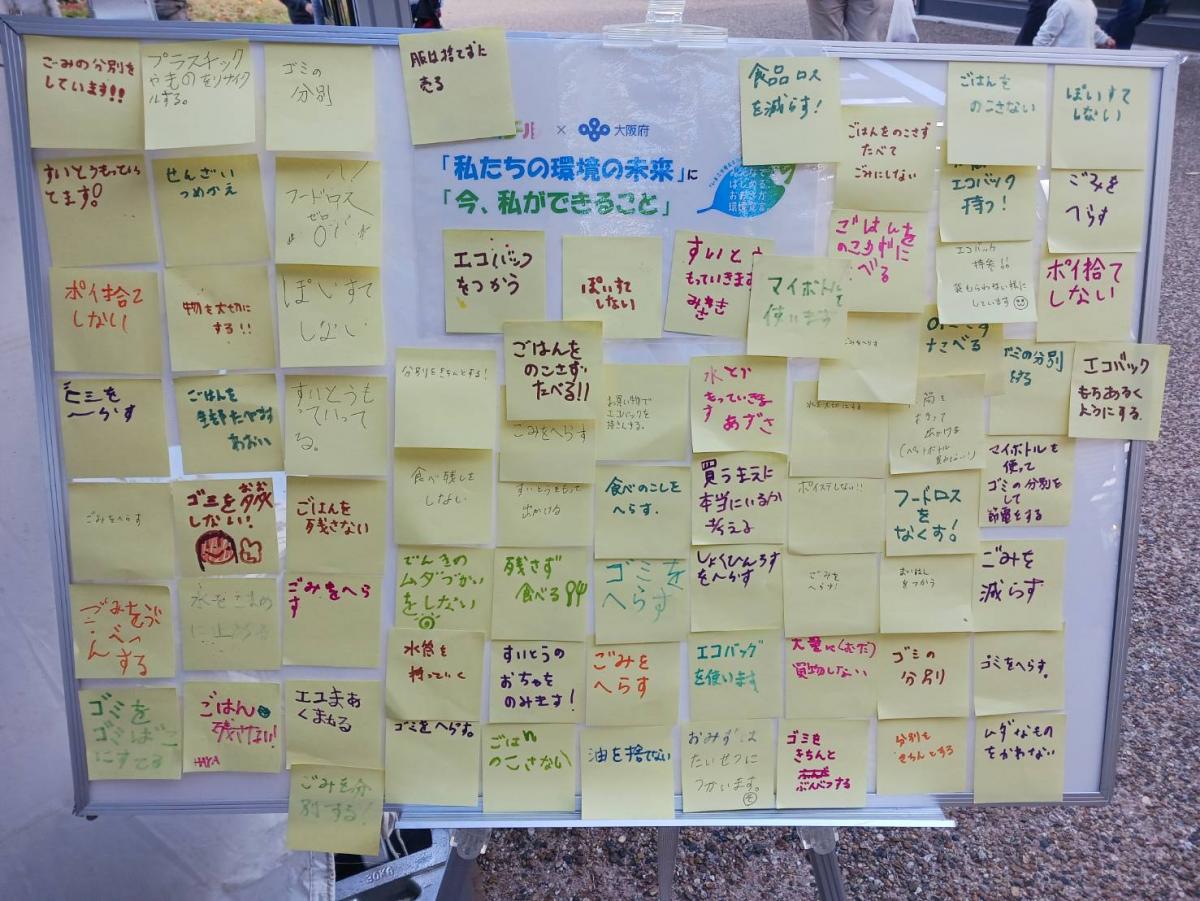 ごみの分別を
しています!!
プラスチック
やものをリサイク
ルする。
ゴミの
分別
服は捨てずに
売る
食品ロス
を減らす!
ごはんをのこさず
たべて
ごみにしない
ごはんを
のこさない
ぽいすて
しない
× 大阪府
「私たちの環境の未来」に
「今、私ができること」
すいとうもってい
てます。
せんざい
つめかえ
フードロス
ゼロ
エコバック
持つ!
ごみを
へらす
エコバックを
つかう
ぽいすて
しない
すいとう
もっていきます
マイボトル
使います
ごはんを
べる
エコバック
持参
袋もらわない様に
しています
ポイ捨て
しない
ポイ捨て
しない
物を大切に
する!!
ぽいすて
しない
ごはんを
のこさず
たべる!!
ごみをへらす
たべる
ゴミの分別
する
エコバック
もちあるく
ようにする。
ゴミを
へらす
ごはんを
あおい
すいとうも
っていって
る。
分別をきちんとする!
ごみをへらす
お買い物で
エコバックを
持さんする。
水とう
もっていきま
す あずさ
水を大切にする
水筒を
もって
出かける
マイボトルを
使って
ゴミの分別を
して
節電をする
ごみをへらす
ゴミを多く
しない!
ごはんを
残さない
食べ残しを
しない
すいとうをもって
出かける
食べのこしを
へらす.
買うまえに
本当にいるか
考える
ポイステしない!!
フードロス
をなくす!
ごみをぶ
んべつ
する
水をこまめ
に止める
ごみをへら
す
でんきの
ムダづかい
をしない
残さず
食べる
ゴミを
へらす
しょくひんろす
をへらす
ごみを
へらす!
まいはし
をつかう
ごみを
減らす
ゴミを
ゴミばこ
にすてる
ごはん
残さない!
HAYA
水筒を
持っていく
すいとうの
おちゃを
のみきす!
ごみを
へらす
エコバッグ
を使います
大量に(むだ)
買物しない
ゴミの
分別
ゴミをへらす。
ごみを分
別する!
ゴミをへらす。
ごはn
のこさない
油を捨てない
おみずは
たいせつに
つかいます。
ゴミを
きちんと
ぶんべつする
分別を
きちんとする
ムダなもの
をかわない